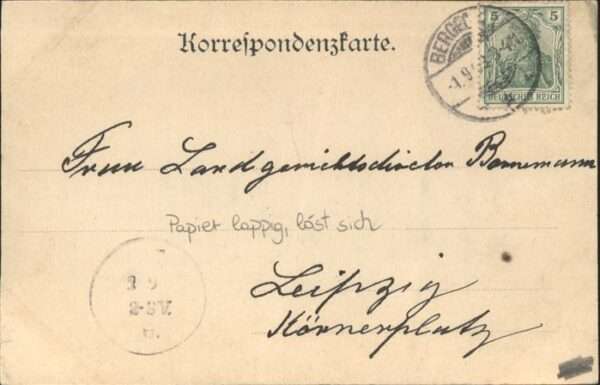 Korrespondenzkarte.
5 5
DEUTSCHES REICH
Frau Landgerichtsdirector Bornemann
Papier lappig, löst sich
Leipzig
Körnerplatz